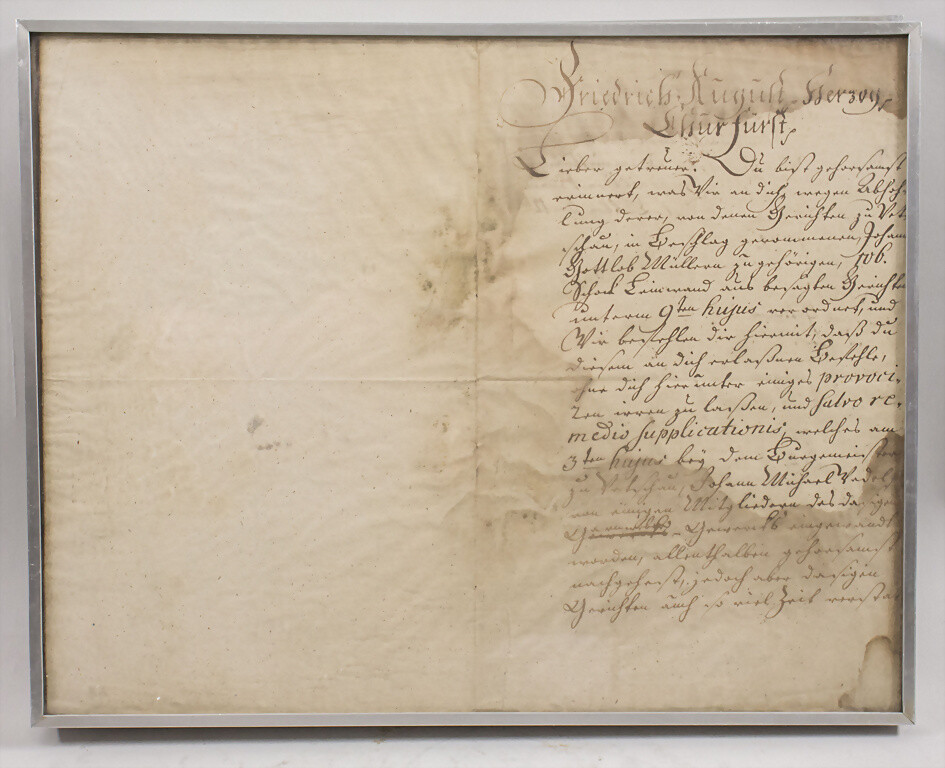 Friedrich August Herzog,
Churfürst,
Lieber getreuer. Du bist gehorsamst
erinnert, was Wir an dich, wegen Abhoh-
lung derer, von denen Gerichten zu Vet
schau, in Beschlag genommenen, Johann
Gottlob Müllern zugehörigen,
Schock Leinwand aus besagten Gerichten
unterm 9ten hujus verordnet, und
Wir befehlen dir hiermit, daß du
diesem an dich erlaßnen Befehle,
ohne dich hierunter einiges provoci-
ren irren zu laßen, und salvo re-
medio supplicationis, welches am
3ten hujus bey dem Burgemeister
zu Vetschau, Johann Michael
von einigen Mitgliedern des dasigen
Gewercks eingewandt
worden, allenthalben gehorsamst
nachgehest, jedoch aber dasigen
Gerichten auch so viel Zeit